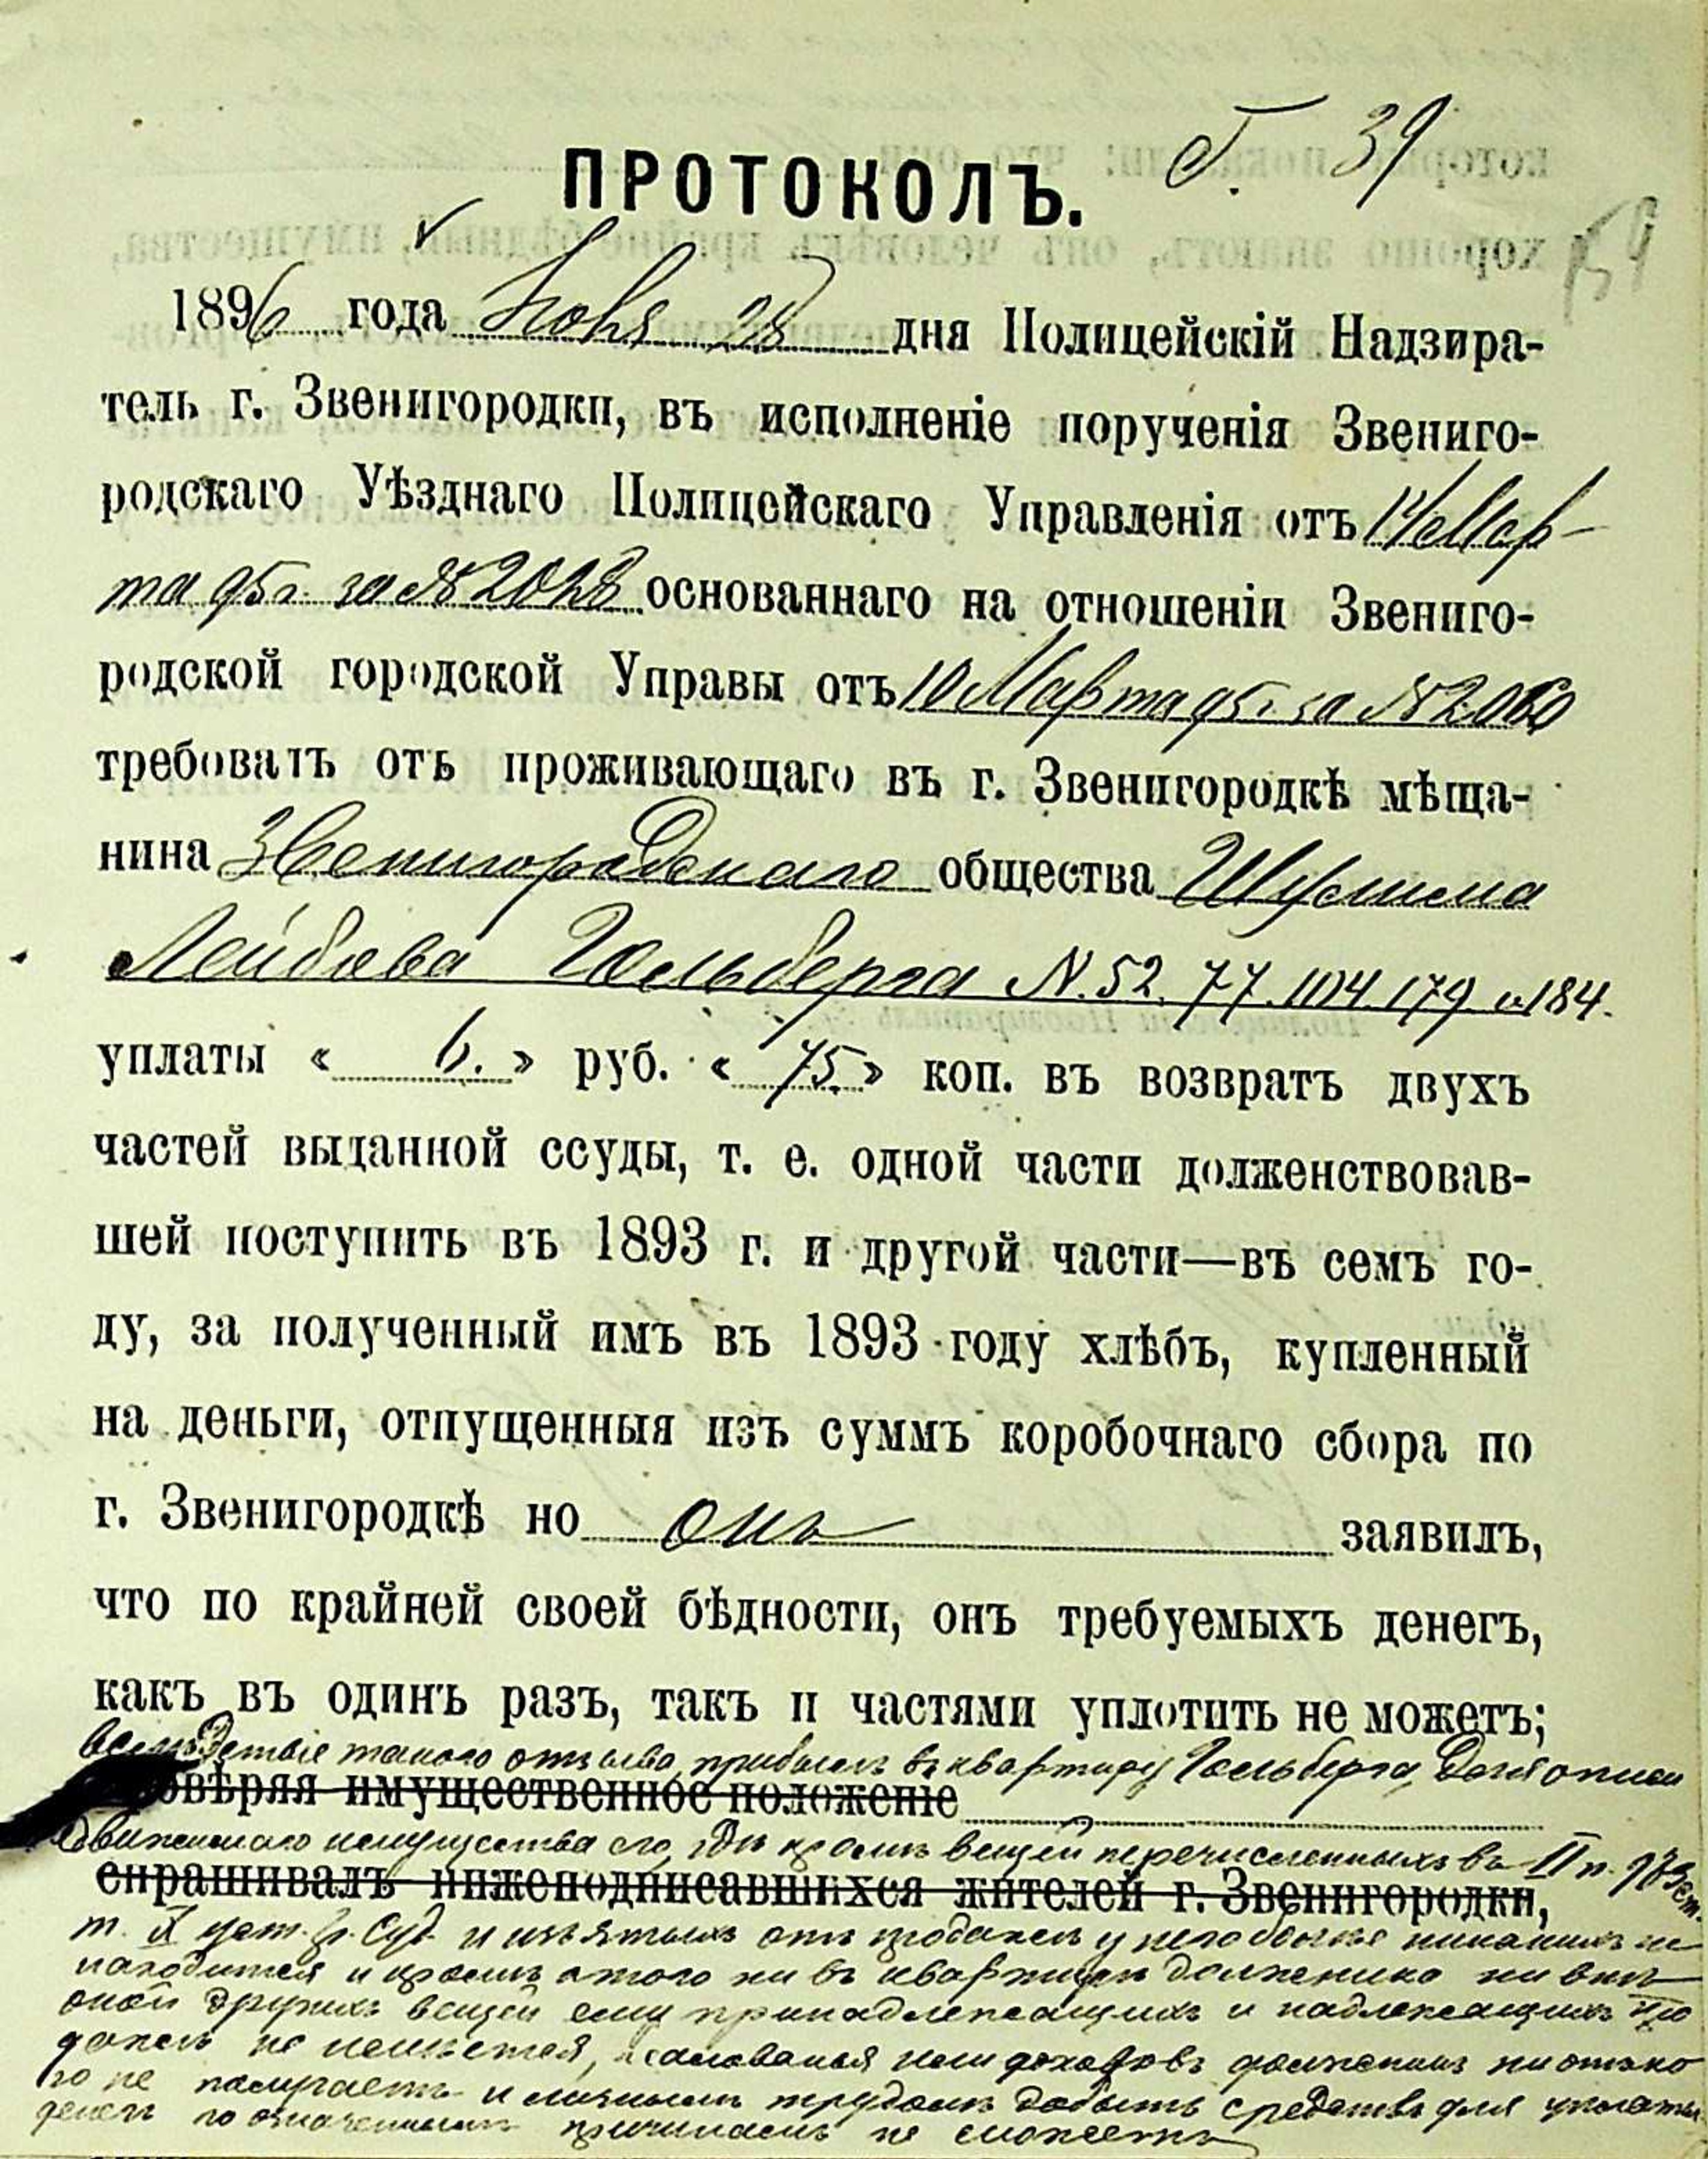 Г. 39
ПРОТОКОЛЪ.
59
1896 года Іюня 28 дня Полицейскій Надзира-
тель г. Звенигородки, въ исполненіе порученія Звениго-
родскаго Уѣзднаго Полицейскаго Управленія отъ 14 Мар-
та 95 г. за № 2028 основаннаго на отношеніи Звениго-
родской городской Управы отъ 10 Марта 95 г. за № 2060
требовалъ отъ проживающаго въ г. Звенигородкѣ мѣща-
нина Звенигородскаго общества
Лейбова Гольберга N. 52. 77. 104. 179 и 184.
уплаты « 6. » руб. « 75. » коп. въ возвратъ двухъ
частей выданной ссуды, т. е. одной части долженствовав-
шей поступить въ 1893 г. и другой части—въ семъ го-
ду, за полученный имъ въ 1893 году хлѣбъ, купленный
на деньги, отпущенныя изъ суммъ коробочнаго сбора по
г. Звенигородкѣ но онъ заявилъ,
что по крайней своей бѣдности, онъ требуемыхъ денегъ,
какъ въ одинъ разъ, такъ и частями уплотить не можетъ;
вслѣдствіе такого отзыва, прибылъ въ квартиру Гольберга для описи
овѣряя имущественное положеніе
движимаго имущества его, гдѣ кромѣ вещей перечисленныхъ въ II п. 973 ст.
спрашивалъ нижеподписавшихся жителей г. Звенигородки,
т. X уст. гр. Суд. и изъятыхъ отъ продажи у него больше никакихъ не
находится и кромѣ этого ни въ квартирѣ должника ни внѣ
оной другихъ вещей ему принадлежащихъ и надлежащихъ про
дажѣ не имѣется, жалованья или доходовъ должникъ ни отъ ко
го не получаетъ и личнымъ трудомъ добыть средствъ для уплаты
денегъ по означеннымъ причинамъ не можетъ